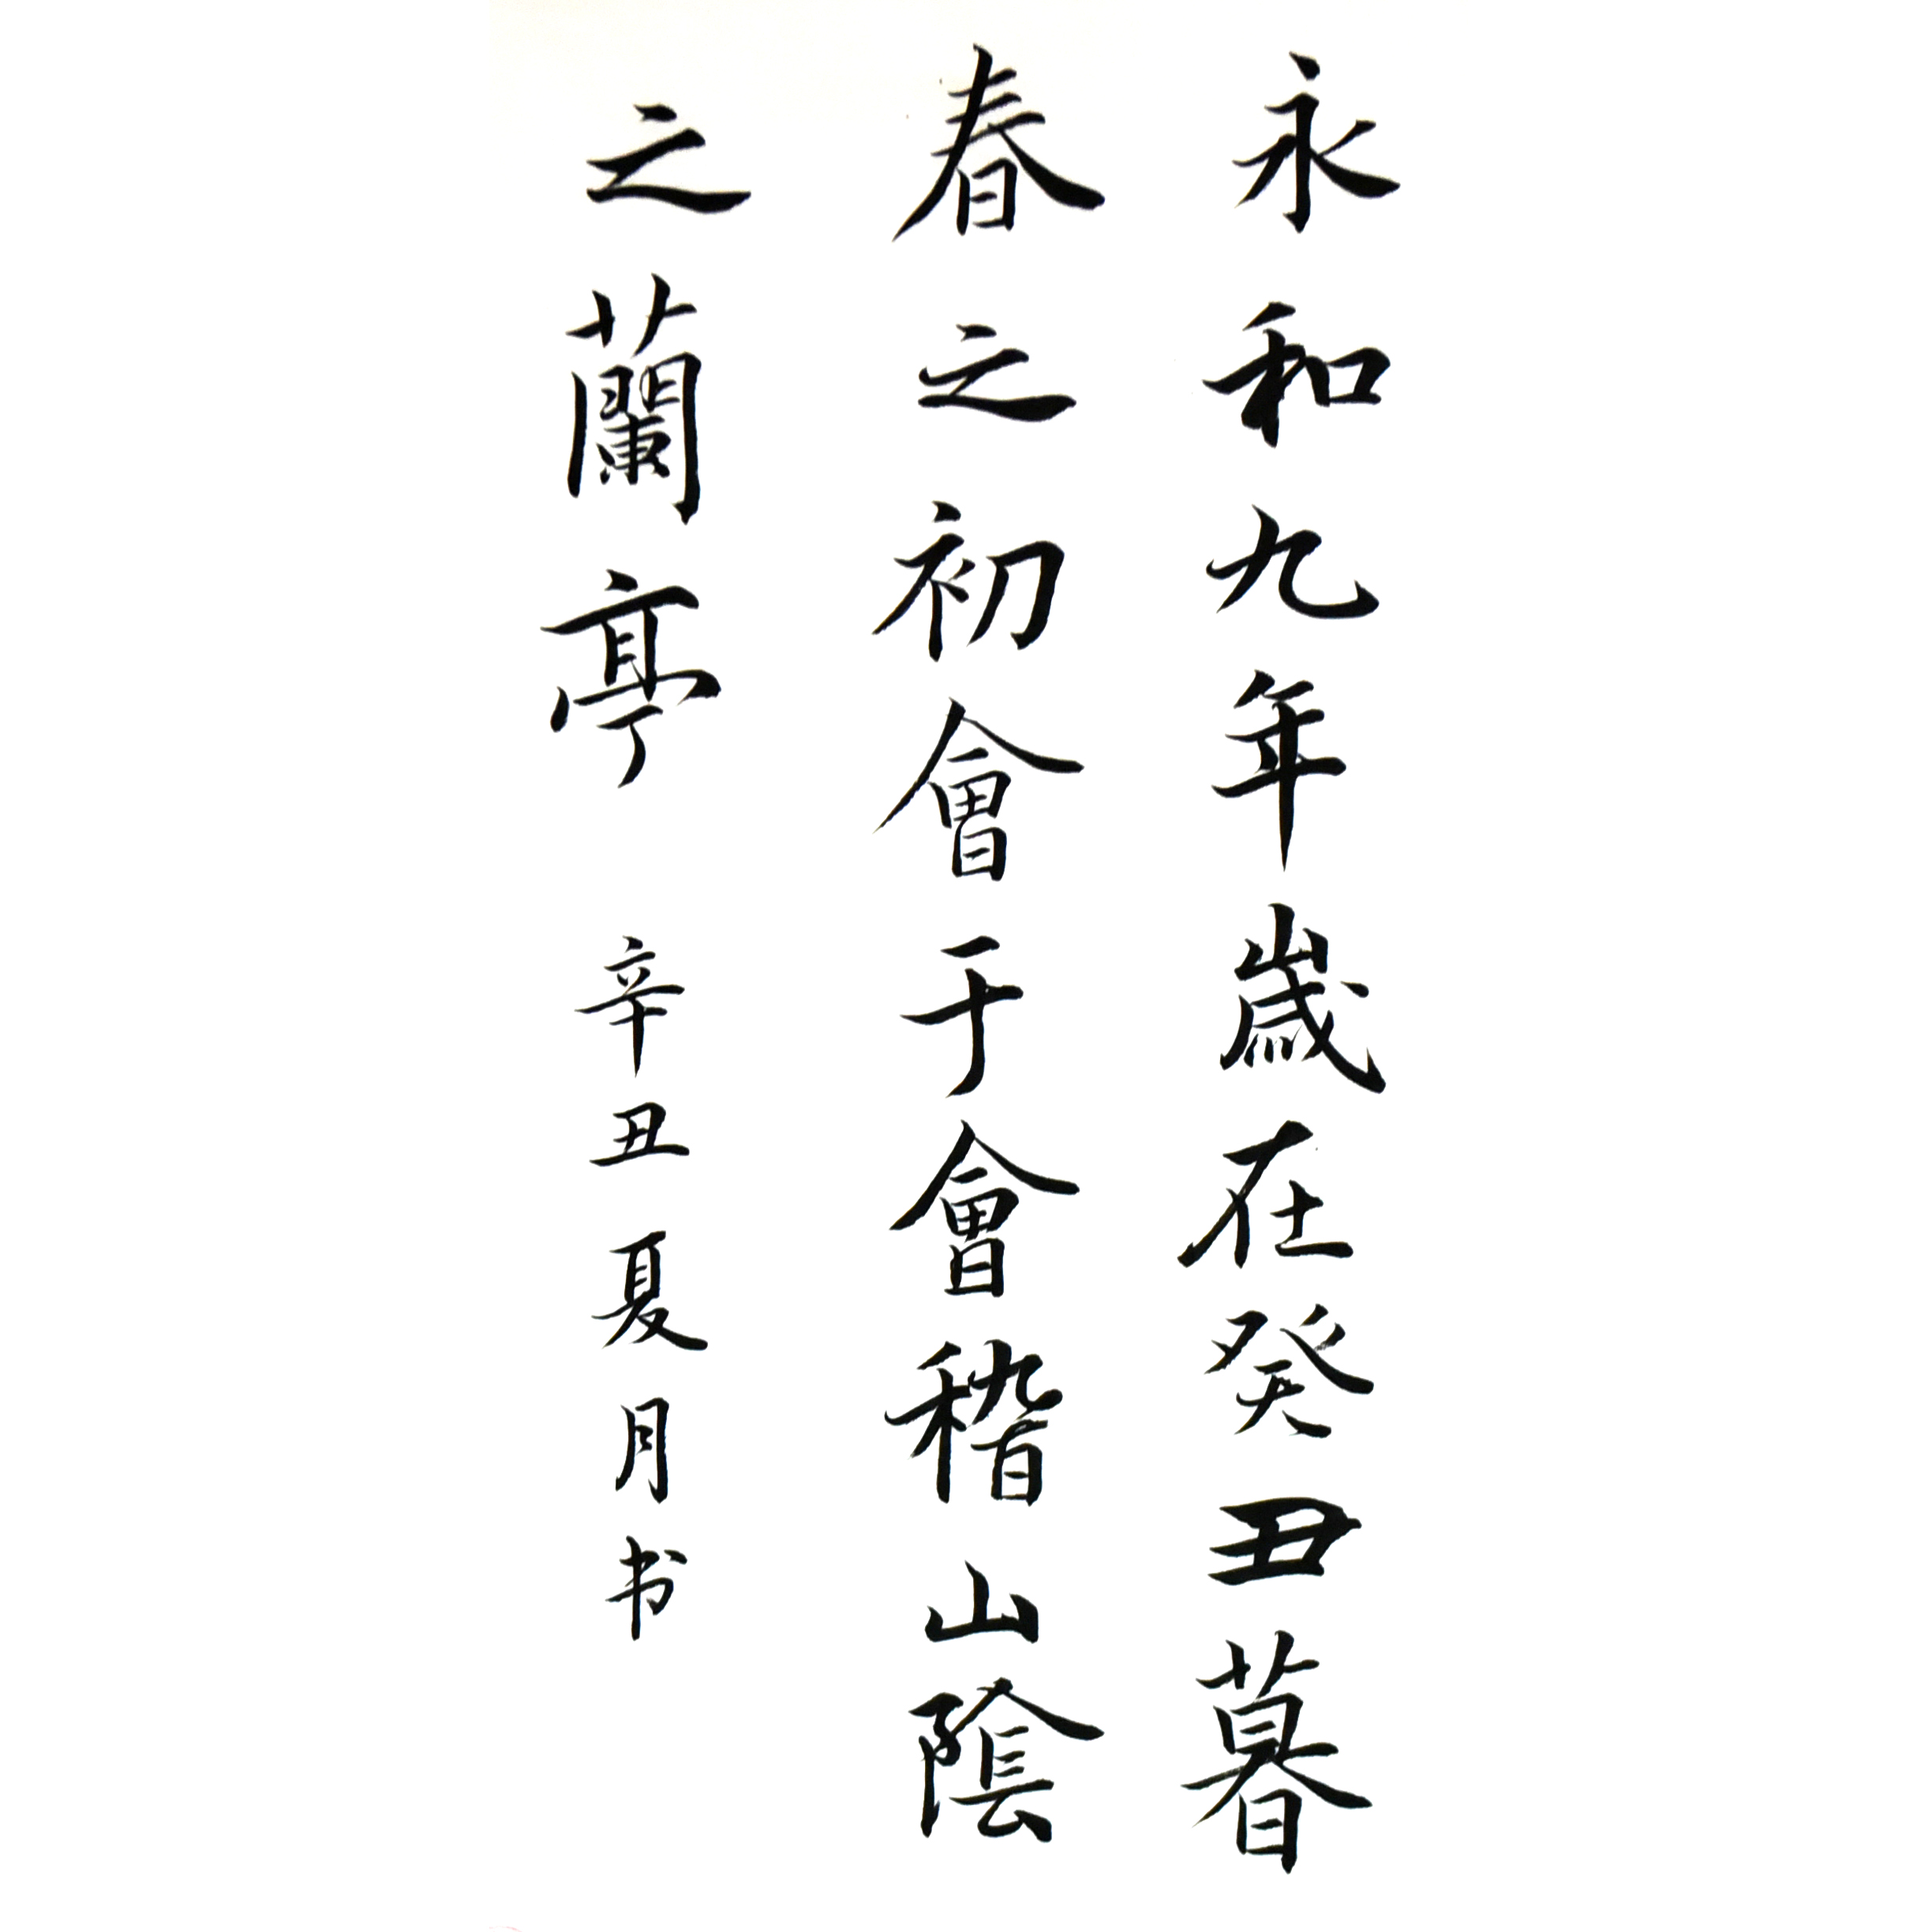 永和九年歲在癸丑暮
春之初會于會稽山陰
之蘭亭 辛丑夏月书